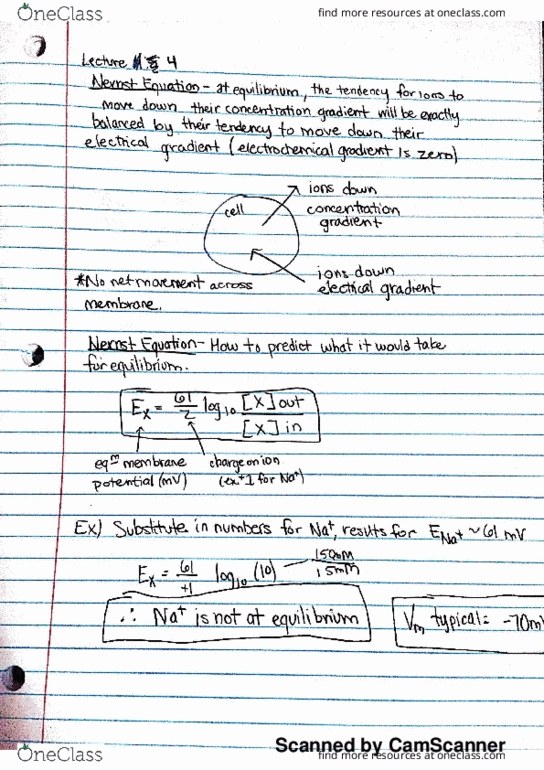 OneClass
find more resources at oneclass.com
Lecture 4
Nernst Equation - at equilibrium, the tendency for ions to
move down their concentration gradient will be exactly
balanced by their tendency to move down their
electrical gradient (electrochemical gradient is zero)
cell
ions down
concentration
gradient
ions down
electrical gradient
*No net movement across
membrane.
Nernst Equation - How to predict what it would take
for equilibrium.
Ex = 61/z log10 [X]out/[X]in
eqm membrane
potential (mV)
charge on ion
(ex +1 for Na+)
Ex) Substitute in numbers for Na+, results for ENa+ ~ 61 mV
Ex = 61/+1 log10 (10)
150mM/15mM
∴ Na+ is not at equilibrium
Vm typical = -70m
Scanned by CamScanner
OneClass
find more resources at oneclass.com